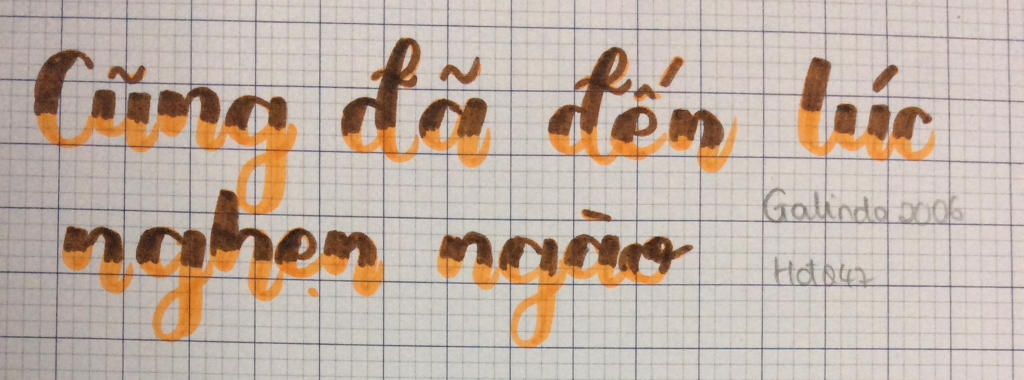 Cũng đã đến lúc
nghẹn ngào
Galindo 2006